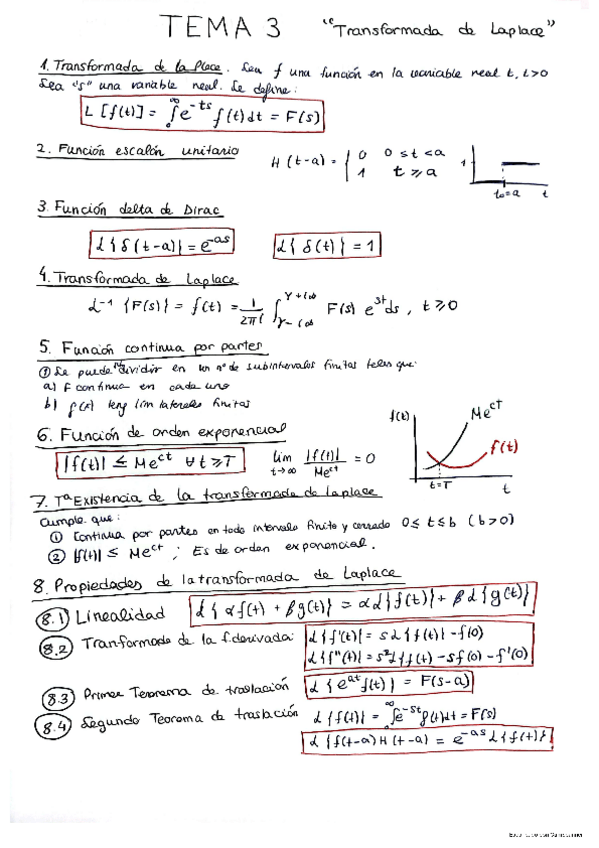 TEMA 3 "Transformada de Laplace"
1. Transformada de la Place. Sea f una función en la variable real t, t>0
Sea "s" una variable real. Se define:
L [f(t)] = ∫₀^∞ e^{-ts} f(t) dt = F(s)
2. Función escalón unitario H (t-a) = { 0 0 ≤ t < a
1 t ⩾ a
1 t₀=a t
3. Función delta de Dirac
L{ δ(t-a)} = e^{-as} L{ δ(t) } = 1
4. Transformada de Laplace
L⁻¹ {F(s)} = f(t) = 1/2πi ∫_{γ-i∞}^{γ+i∞} F(s) e^{st} ds, t ⩾ 0
5. Función continua por partes
① Se puede dividir en un nº de subintervalos finitos tales que:
a) F continua en cada uno
b) f(x) teng lím laterales finitos
6. Función de orden exponencial
|f(t)| ≤ Me^{ct} ∀ t ⩾ T lím t→∞ |f(t)|/Me^{ct} = 0
f(t) Me^{ct} f(t) t=T t
7. Tª Existencia de la transformada de laplace
Cumple que:
① Continua por partes en todo intervalo finito y cerrado 0 ≤ t ≤ b (b>0)
② |f(t)| ≤ Me^{ct} ; Es de orden exponencial.
8. Propiedades de la transformada de Laplace
8.1 Linealidad L{ αf(t) + βg(t)} = αL{f(t)} + βL{g(t)}
8.2 Tranformada de la f.derivada: L{f'(t)} = sL{f(t)} - f(0)
L{f''(t)} = s²L{f(t) - sf(0) - f'(0)
8.3 Primer Teorema de traslación L{e^{at}f(t)} = F(s-a)
8.4 Segundo Teorema de traslación L{f(t)} = ∫₀^∞ e^{-st} f(t)dt = F(s)
L{f(t-a)H(t-a) = e^{-as} L{f(t)}